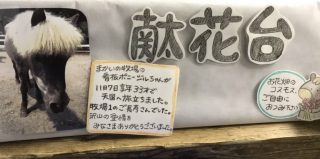 献花台
まかいの牧場の
看板ポニー ジルちゃんが
11月7日享年33才で
天国へ旅立ちました。
牧場1のご長寿さんでした。
沢山の愛情を
みなさまありがとうございました。
お花畑の
コスモス、
ご自由に
おつみ下さい